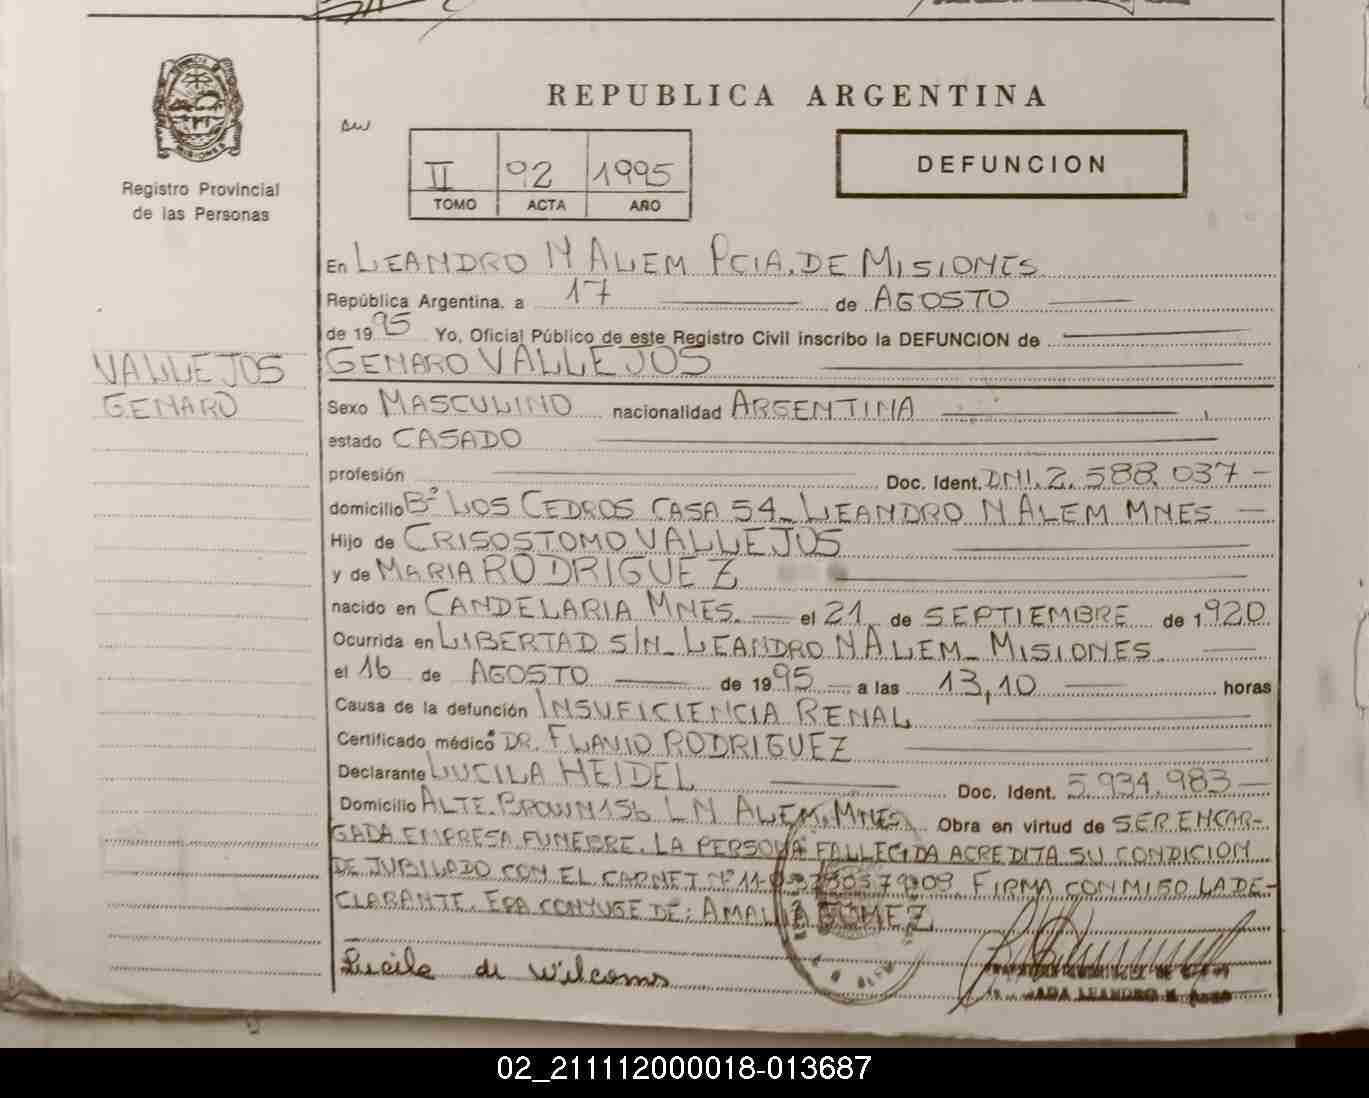 MISIONES
Registro Provincial
de las Personas
REPUBLICA ARGENTINA
II 92 1995
TOMO ACTA AÑO
DEFUNCION
En LEANDRO N ALEM PCIA. DE MISIONES
República Argentina, a 17 de AGOSTO
de 1995 Yo, Oficial Público de este Registro Civil inscribo la DEFUNCION de
VALLEJOS
GENARO
GENARO VALLEJOS
Sexo MASCULINO nacionalidad ARGENTINA
estado CASADO
profesión Doc. Ident. DNI. 2.588.037
domicilio Bº LOS CEDROS CASA 54_ LEANDRO N ALEM MNES
Hijo de CRISOSTOMO VALLEJOS
y de MARIA RODRIGUEZ
nacido en CANDELARIA MNES. el 21 de SEPTIEMBRE de 1920
Ocurrida en LIBERTAD S/N_ LEANDRO N ALEM_ MISIONES
el 16 de AGOSTO de 1995 a las 13,10 horas
Causa de la defunción INSUFICIENCIA RENAL
Certificado médico DR. FLAVIO RODRIGUEZ
Declarante LUCILA HEIDEL Doc. Ident. 5.934.983
Domicilio ALTE. BROWN 156 L N ALEM, MNES Obra en virtud de SER ENCAR-
GADA EMPRESA FUNEBRE. LA PERSONA FALLECIDA ACREDITA SU CONDICION
DE JUBILADO CON EL CARNET Nº FIRMA CONMIGO LA DE-
CLARANTE. ERA CONYUGE DE: AMALIA GOMEZ
Lucila de
02_211112000018-013687